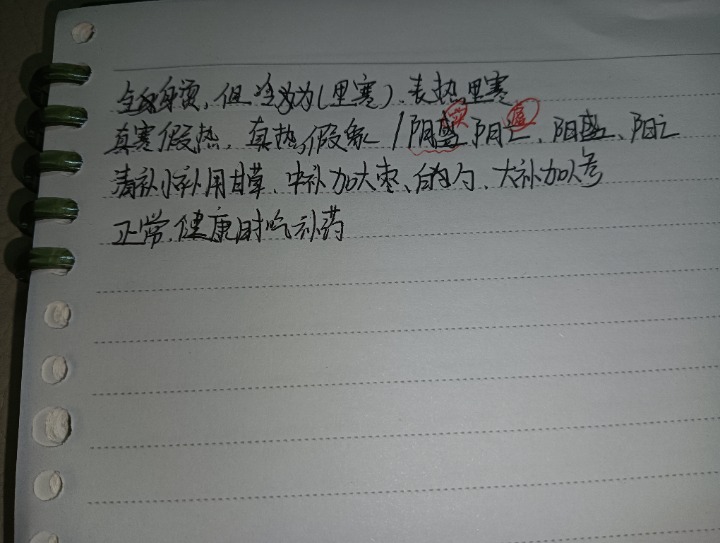 身烫，但冷为(里寒)、表热里寒
真寒假热，真热假象/阴盛阳亡、阳盛、阳亡
清补小补用甘草、中补加大枣、白芍、大补加人参
正常、健康时吃补药
实